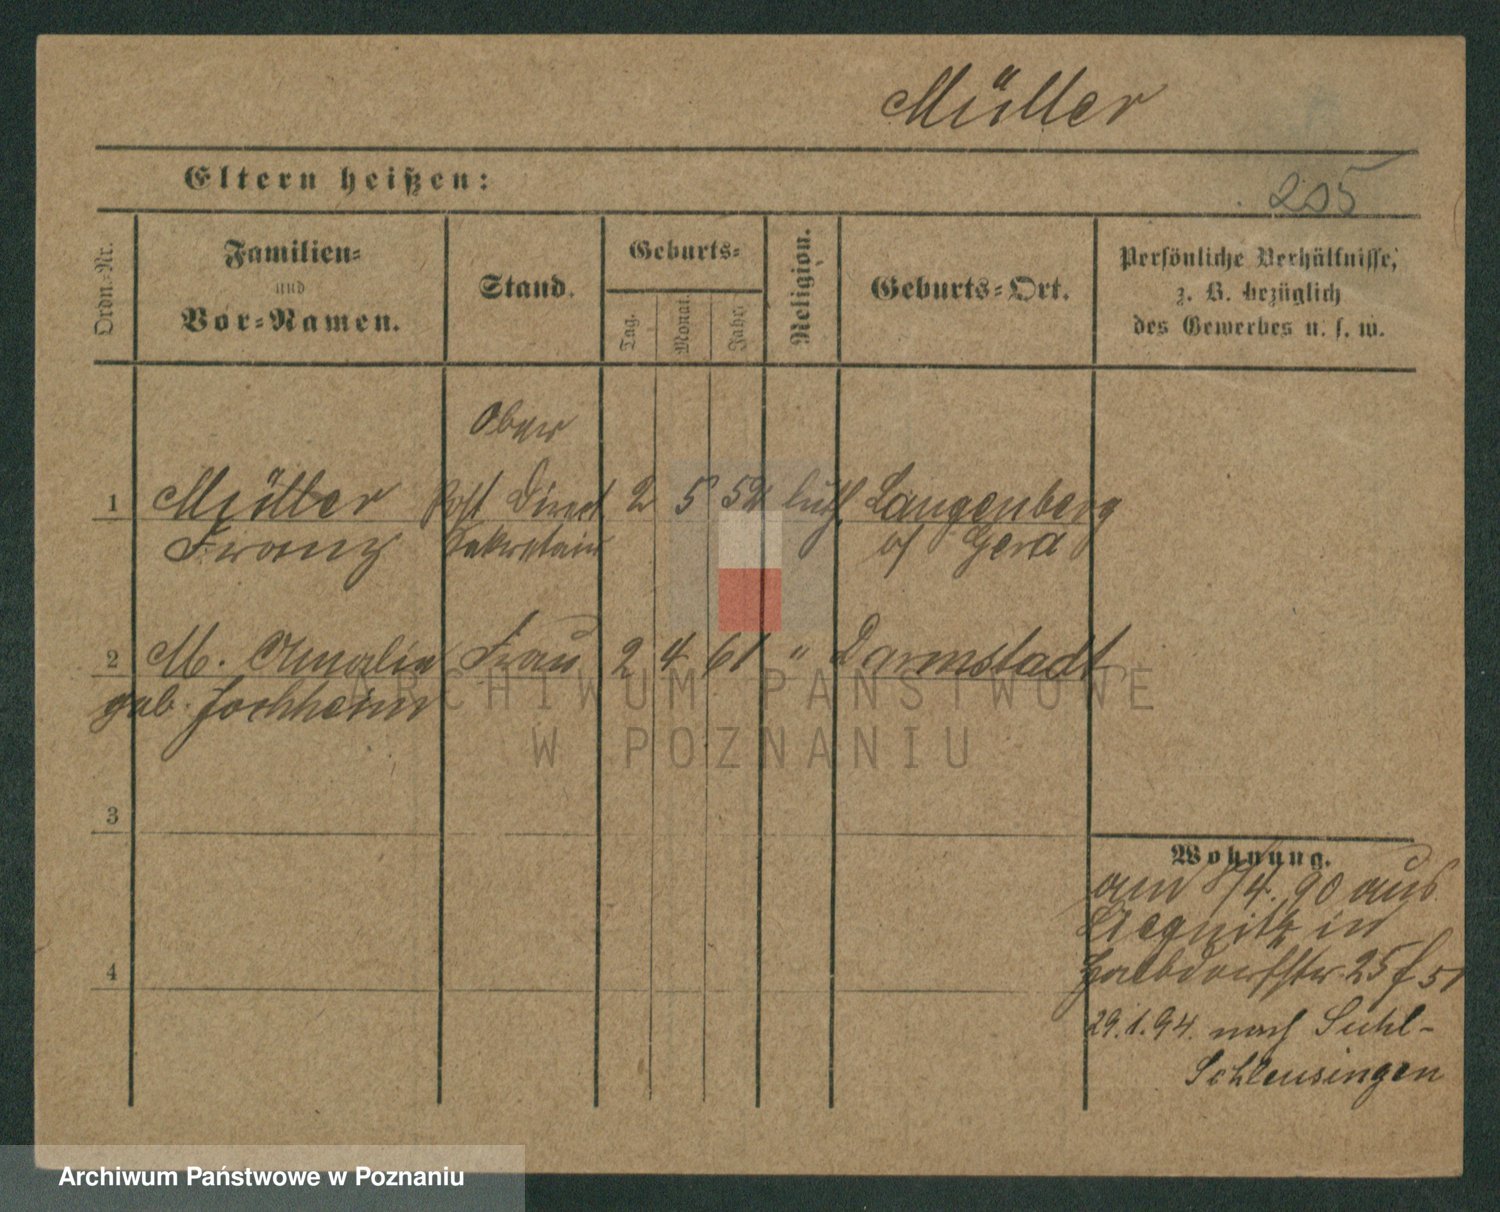 Müller
Eltern heißen:
205
Ordn.-Nr.
Familien-
und
Vor-Namen.
Stand.
Geburts-
Tag.
Monat.
Jahr.
Religion.
Geburts-Ort.
Persönliche Verhältnisse,
z. B. bezüglich
des Gewerbes u. s. w.
Ober
1 Müller Post Direct 2 5 52 luth Langenberg
Franz Sekretair b/ Gera
2 M. Amalie Frau 2 4 61 " Darmstadt
geb. Jochheim
3
4
Wohnung.
am 8/4. 90 aus
Liegnitz in
Halbdorfstr. 25 f 51
29.1.94. nach Suhl-
Schleusingen
ARCHIWUM PAŃSTWOWE
W POZNANIU
Archiwum Państwowe w Poznaniu